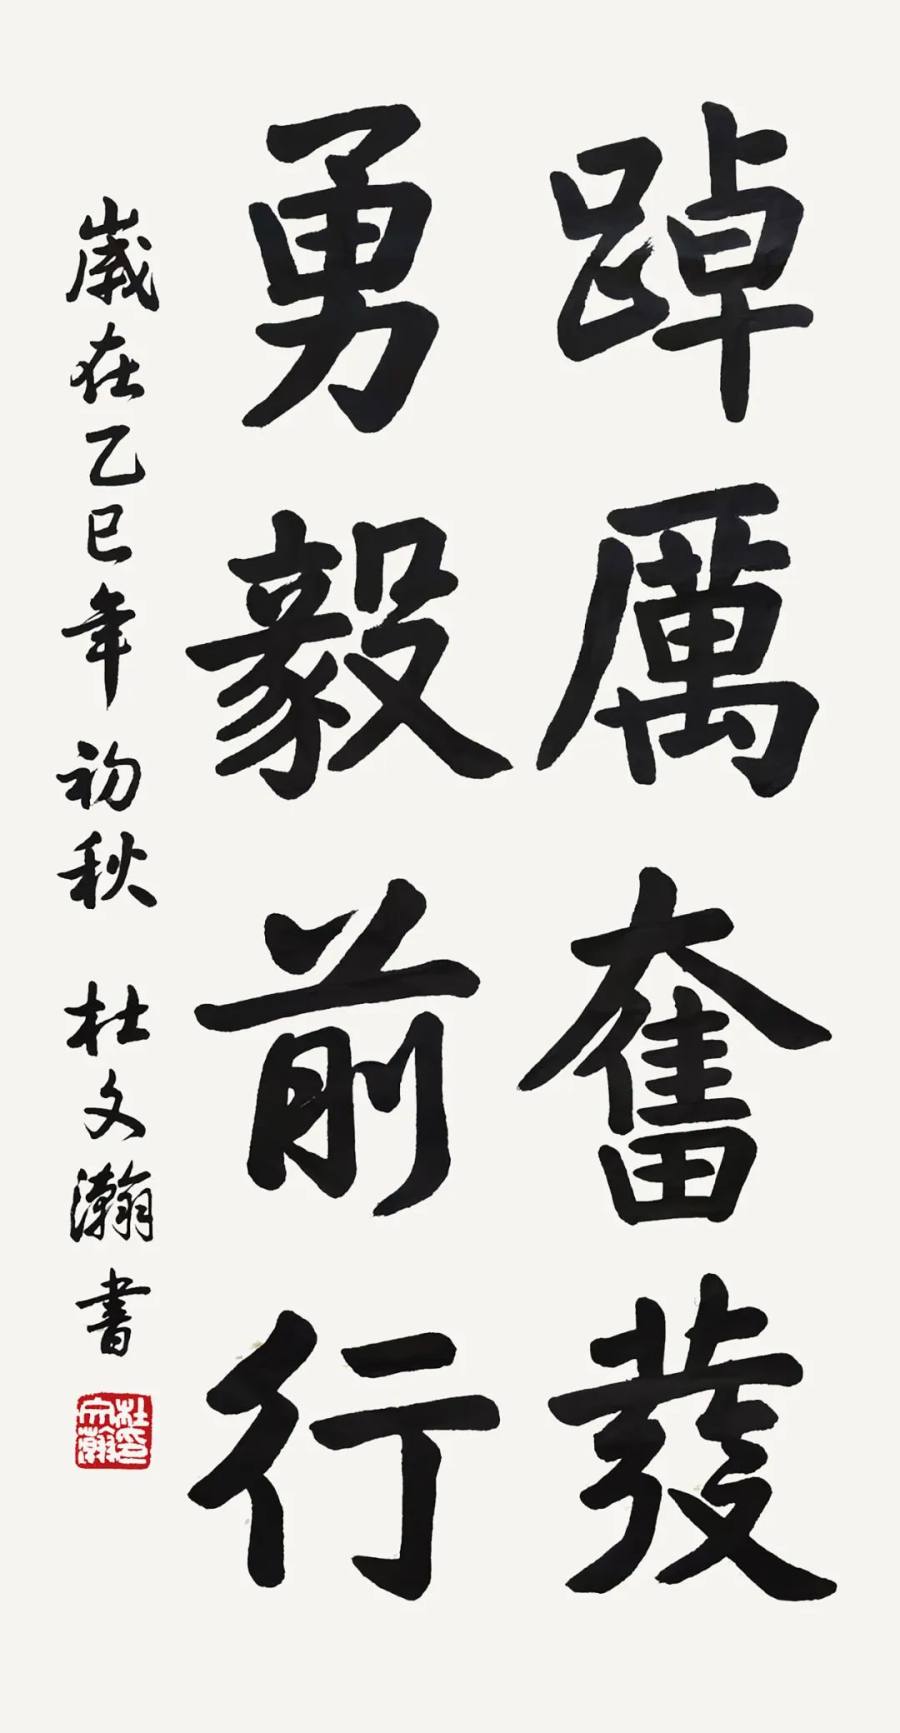 踔厲奮發
勇毅前行
歲在乙巳年初秋 杜文瀚書
杜文瀚印